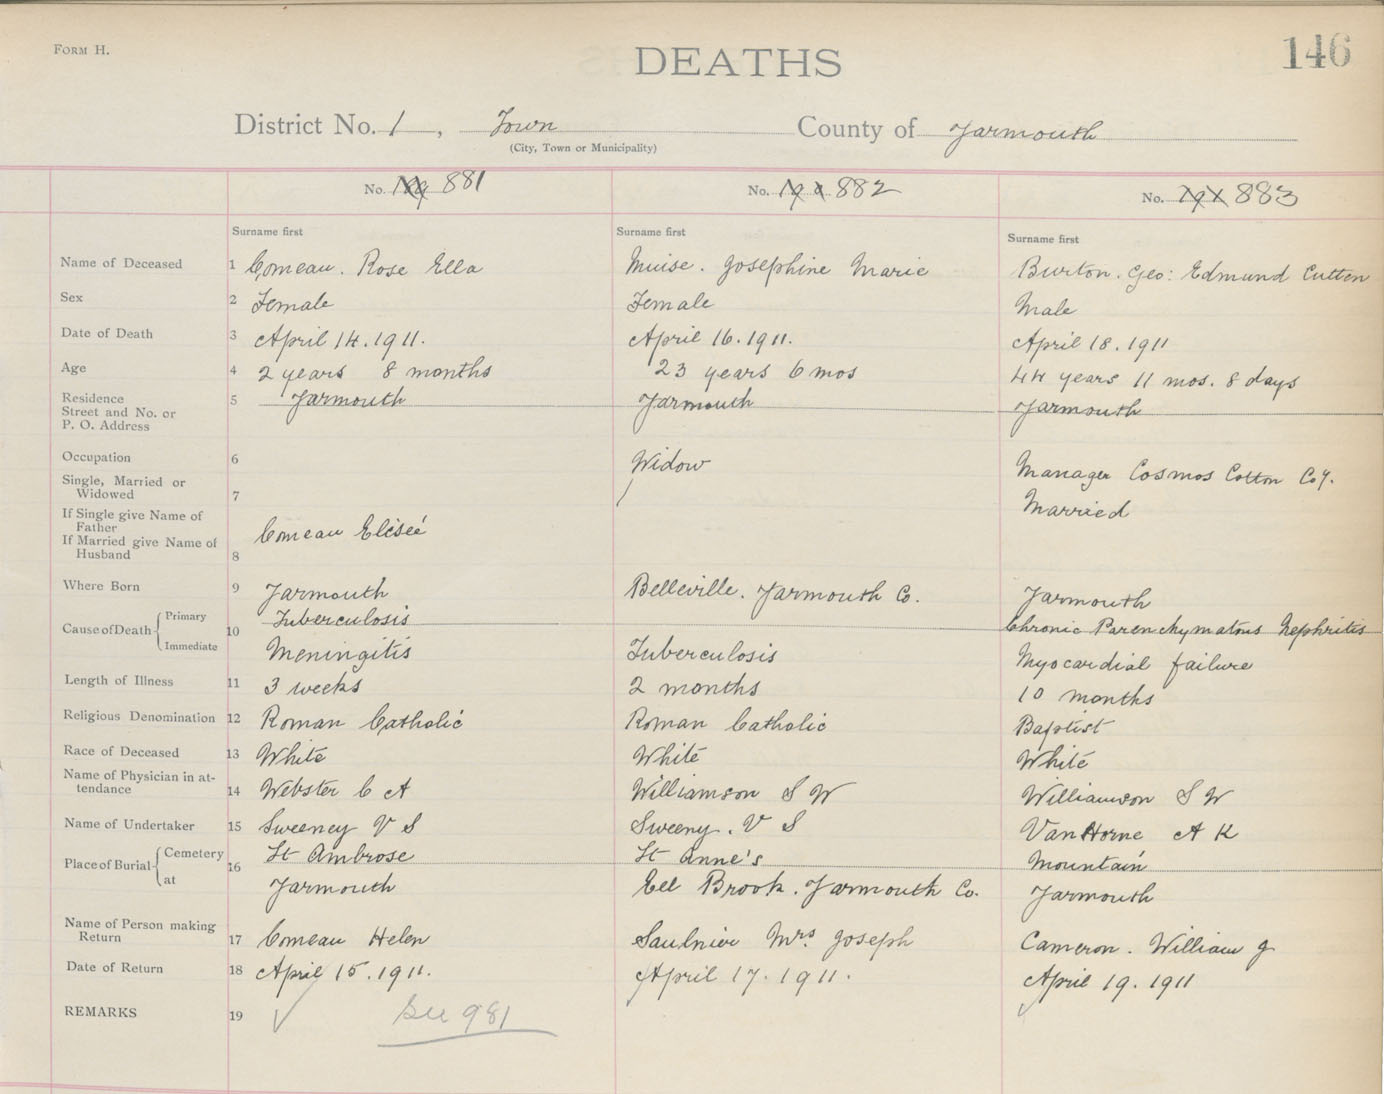 FORM H.
DEATHS
146
District No. 1, Town County of Yarmouth
(City, Town or Municipality)
No. 881 No. 882 No. 883
Surname first Surname first Surname first
Name of Deceased 1 Comeau. Rose Ella Muise. Josephine Marie Burton. Geo: Edmund Cutten
Sex 2 Female Female Male
Date of Death 3 April 14. 1911. April 16. 1911. April 18. 1911
Age 4 2 years 8 months 23 years 6 mos 44 years 11 mos. 8 days
Residence 5 Yarmouth Yarmouth Yarmouth
Street and No. or
P. O. Address
Occupation 6 Widow Manager Cosmos Cotton Coy.
Single, Married or
Widowed 7 Married
If Single give Name of
Father
If Married give Name of
Husband 8 Comeau Eliseé
Where Born 9 Yarmouth Belleville. Yarmouth Co. Yarmouth
Cause of Death 10 Primary Tuberculosis Chronic Parenchymatous Nephritis
Immediate Meningitis Tuberculosis Myocardial failure
Length of Illness 11 3 weeks 2 months 10 months
Religious Denomination 12 Roman Catholic Roman Catholic Baptist
Race of Deceased 13 White White White
Name of Physician in at-
tendance 14 Webster C A Williamson S W Williamson S W
Name of Undertaker 15 Sweeney V S Sweeny. V S VanHorne A K
Place of Burial 16 Cemetery St Ambrose St Anne's Mountain
at Yarmouth Eel Brook. Yarmouth Co. Yarmouth
Name of Person making
Return 17 Comeau Helen Saulnier Mrs. Joseph Cameron. William J
Date of Return 18 April 15. 1911. April 17. 1911. April 19. 1911
REMARKS 19 See 981